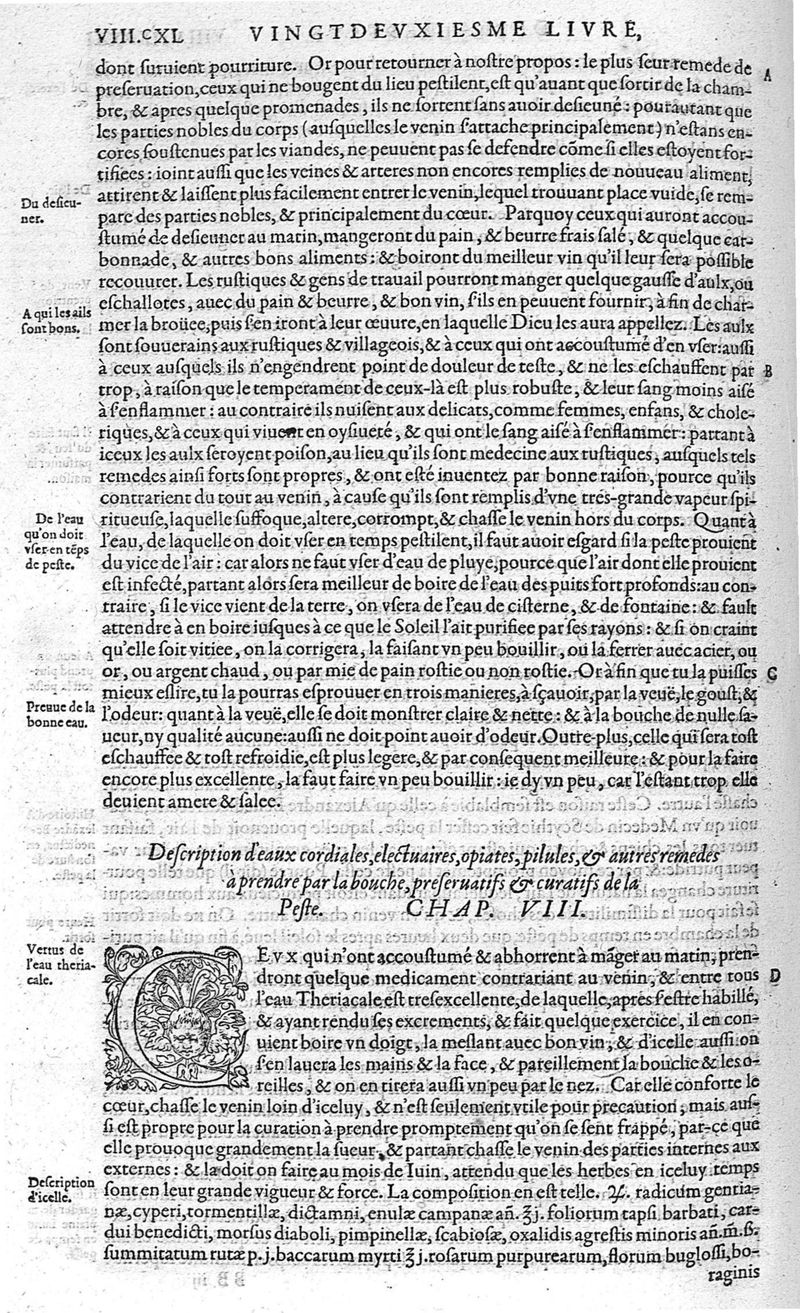 VIII.CXL VINGTDEVXIESME LIVRE,
dont suruient pourriture. Or pour retourner à nostre propos : le plus seur remede de
preseruation, ceux qui ne bougent du lieu pestilent, est qu'auant que sortir de la cham-
A
bre, & apres quelque promenades, ils ne sortent sans auoir desieuné : pourautant que
les parties nobles du corps (ausquelles le venin s'attache principalement) n'estans en-
cores soustenues par les viandes, ne peuuent pas se defendre cōme si elles estoyent for-
tifiees : ioint aussi que les veines & arteres non encores remplies de nouueau aliment,
attirent & laissent plus facilement entrer le venin, lequel trouuant place vuide, se rem-
Du desieu-
ner.
pare des parties nobles, & principalement du cœur. Parquoy ceux qui auront accou-
stumé de desieuner au matin, mangeront du pain, & beurre frais salé, & quelque car-
bonnade, & autres bons aliments : & boiront du meilleur vin qu'il leur sera possible
recouurer. Les rustiques & gens de trauail pourront manger quelque gausse d'aulx, ou
eschallotes, auec du pain & beurre, & bon vin, s'ils en peuuent fournir, à fin de char-
A qui les ails
sont bons.
mer la broüee, puis s'en iront à leur œuure, en laquelle Dieu les aura appellez. Les aulx
sont souuerains aux rustiques & villageois, & à ceux qui ont accoustumé d'en vser: aussi
à ceux ausquels ils n'engendrent point de douleur de teste, & ne les eschauffent par
B
trop, à raison que le temperament de ceux-là est plus robuste, & leur sang moins aisé
à s'enflammer : au contraire ils nuisent aux delicats, comme femmes, enfans, & chole-
riques, & à ceux qui viuent en oysiueté, & qui ont le sang aisé à s'enflammer : partant à
iceux les aulx seroyent poison, au lieu qu'ils sont medecine aux rustiques, ausquels tels
remedes ainsi forts sont propres, & ont esté inuentez par bonne raison, pource qu'ils
contrarient du tout au venin, à cause qu'ils sont remplis d'vne trés-grande vapeur spi-
De l'eau
qu'on doit
vser en tēps
de peste.
ritueuse, laquelle suffoque, altere, corrompt, & chasse le venin hors du corps. Quant à
l'eau, de laquelle on doit vser en temps pestilent, il faut auoir esgard si la peste prouient
du vice de l'air : car alors ne faut vser d'eau de pluye, pource que l'air dont elle prouient
est infecté, partant alors sera meilleur de boire de l'eau des puits fort profonds: au con-
traire, si le vice vient de la terre, on vsera de l'eau de cisterne, & de fontaine : & fault
attendre à en boire iusques à ce que le Soleil l'ait purifiee par ses rayons : & si on craint
qu'elle soit vitiee, on la corrigera, la faisant vn peu bouillir, ou la ferrer auec acier, ou
or, ou argent chaud, ou par mie de pain rostie ou non rostie. Or à fin que tu la puisses
C
mieux eslire, tu la pourras esprouuer en trois manieres, à sçauoir, par la veuë, le goust, &
Preuue de la
bonne eau.
l'odeur: quant à la veuë, elle se doit monstrer claire & nette : & à la bouche de nulle sa-
ueur, ny qualité aucune: aussi ne doit point auoir d'odeur. Outre-plus, celle qui sera tost
eschauffee & tost refroidie, est plus legere, & par consequent meilleure : & pour la faire
encore plus excellente, la faut faire vn peu bouillir : ie dy vn peu, car l'estant trop elle
deuient amere & salee.
Description d'eaux cordiales, electuaires, opiates, pilules, & autres remedes
à prendre par la bouche, preseruatifs & curatifs de la
Peste. CHAP. VIII.
Vertus de
l'eau theria-
cale.
CEVX qui n'ont accoustumé & abhorrent à māger au matin, pren-
dront quelque medicament contrariant au venin, & entre tous
D
l'eau Theriacale est tresexcellente, de laquelle, apres s'estre habillé,
& ayant rendu ses excrements, & fait quelque exercice, il en con-
uient boire vn doigt, la meslant auec bon vin, & d'icelle aussi on
s'en lauera les mains & la face, & pareillement la bouche & les o-
reilles, & on en tirera aussi vn peu par le nez. Car elle conforte le
cœur, chasse le venin loin d'iceluy, & n'est seulement vtile pour precaution, mais aus-
si est propre pour la curation à prendre promptement qu'on se sent frappé, par-ce que
elle prouoque grandement la sueur, & partant chasse le venin des parties internes aux
externes : & la doit on faire au mois de Iuin, attendu que les herbes en iceluy temps
Description
d'icelle.
sont en leur grande vigueur & force. La composition en est telle. ♃. radicum gentia-
næ, cyperi, tormentillæ, dictamni, enulæ campanæ añ. ℥j. foliorum tapsi barbati, car-
dui benedicti, morsus diaboli, pimpinellæ, scabiosæ, oxalidis agrestis minoris añ. m̃. ß.
summitatum rutæ p. j. baccarum myrti ℥j. rosarum purpurearum, florum buglossi, bo-
raginis